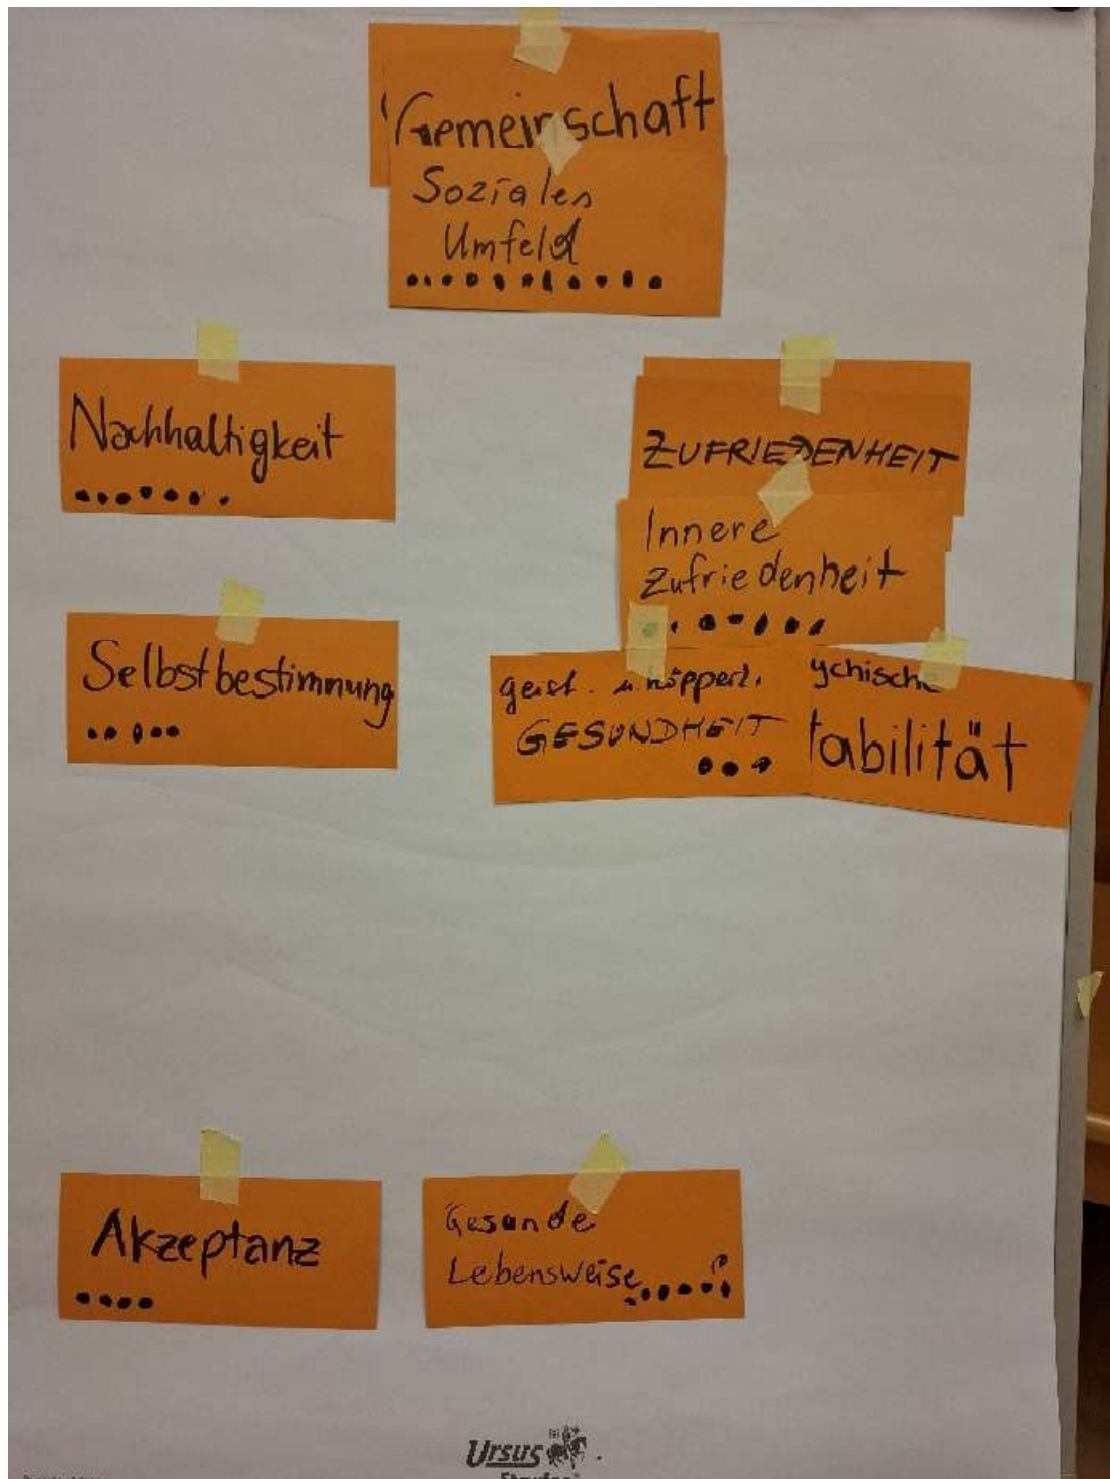 Gemeinschaft
Soziales
Umfeld
Nachhaltigkeit
ZUFRIEDENHEIT
Innere
Zufriedenheit
Selbstbestimmung
geist. u. köpperl.
GESUNDHEIT
ychische
tabilität
Akzeptanz
Gesunde
Lebensweise
Ursus